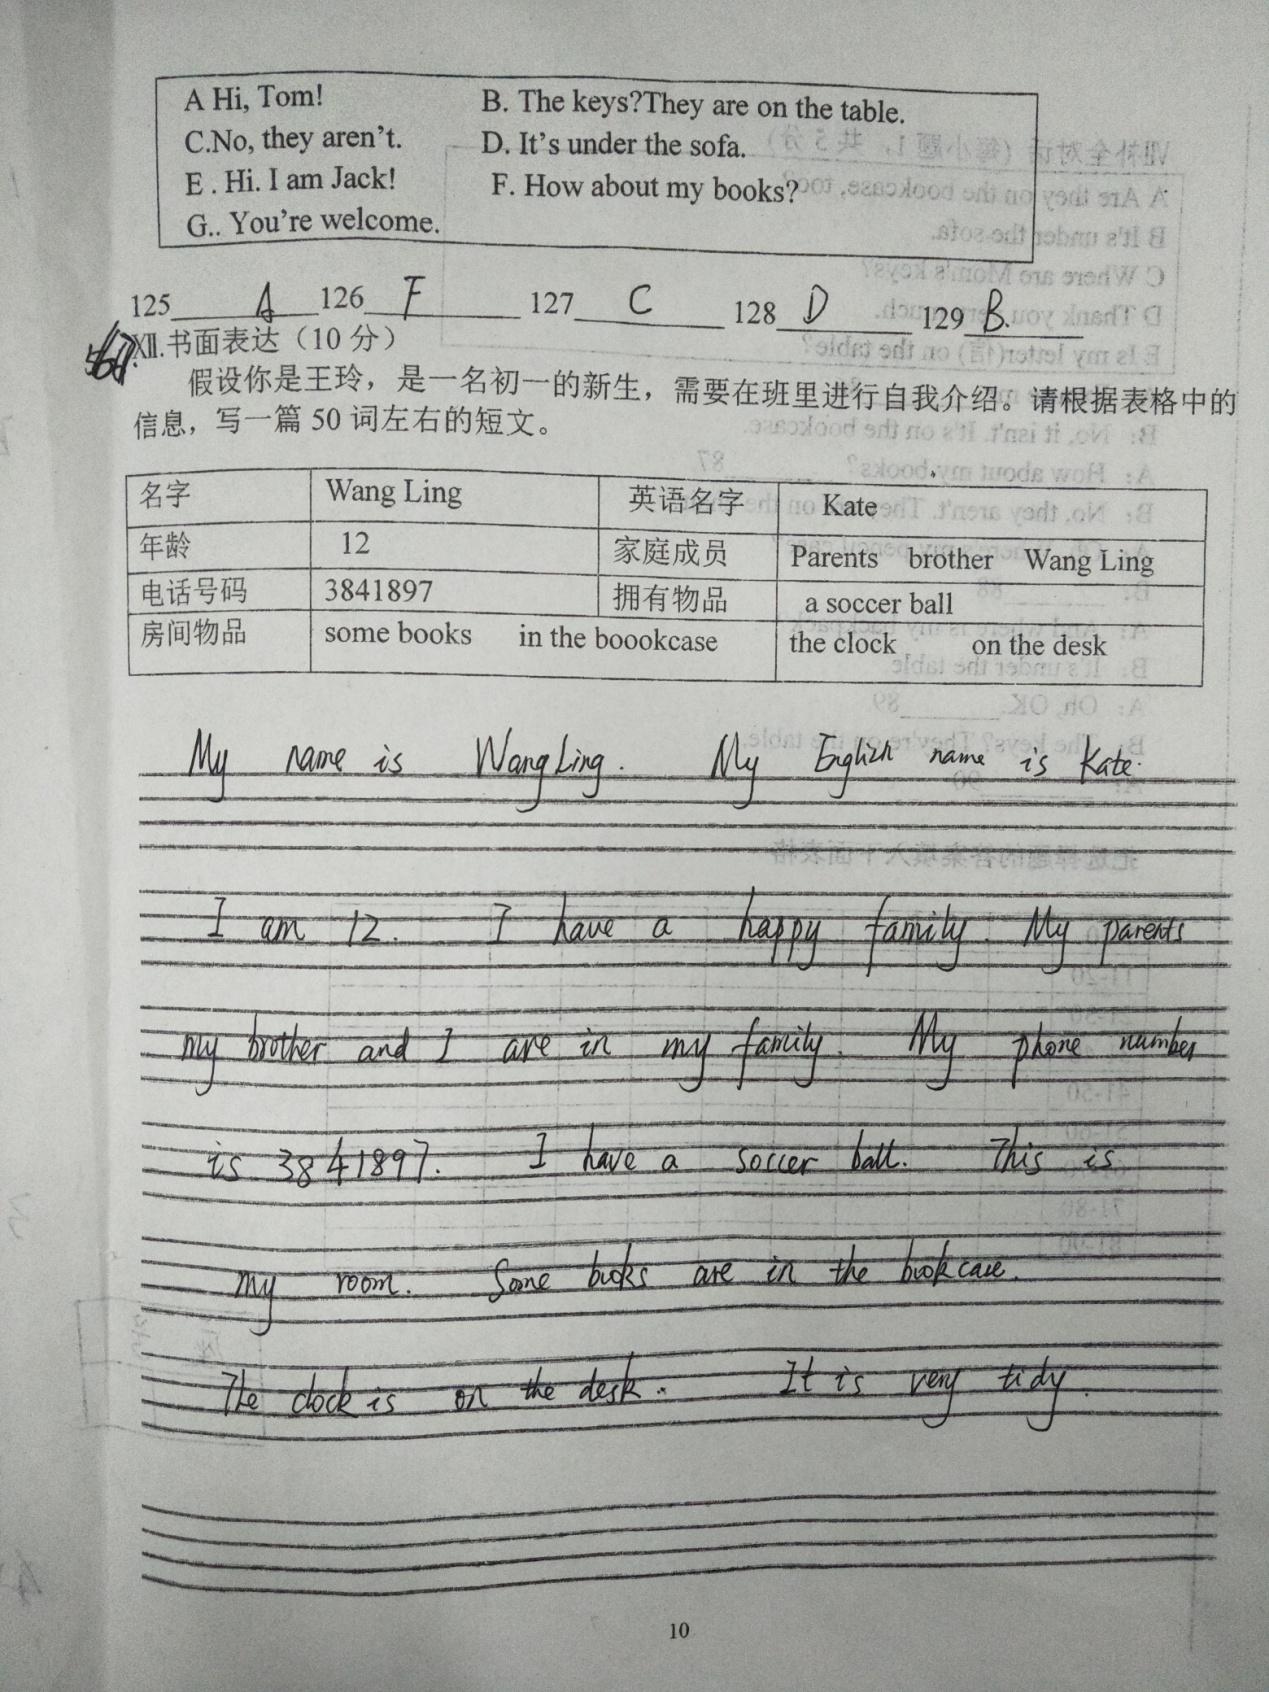 A Hi, Tom! B. The keys?They are on the table.
C.No, they aren't. D. It's under the sofa.
E . Hi. I am Jack! F. How about my books?
G.. You're welcome.
125 A 126 F 127 C 128 D 129 B.
XII.书面表达（10 分）
假设你是王玲，是一名初一的新生，需要在班里进行自我介绍。请根据表格中的
信息，写一篇 50 词左右的短文。
名字 Wang Ling 英语名字 Kate
年龄 12 家庭成员 Parents brother Wang Ling
电话号码 3841897 拥有物品 a soccer ball
房间物品 some books in the boookcase the clock on the desk
My name is Wang Ling. My English name is Kate.
I am 12. I have a happy family. My parents
my brother and I are in my family. My phone number
is 3841897. I have a soccer ball. This is
my room. Some books are in the bookcase.
The clock is on the desk. It is very tidy.
10